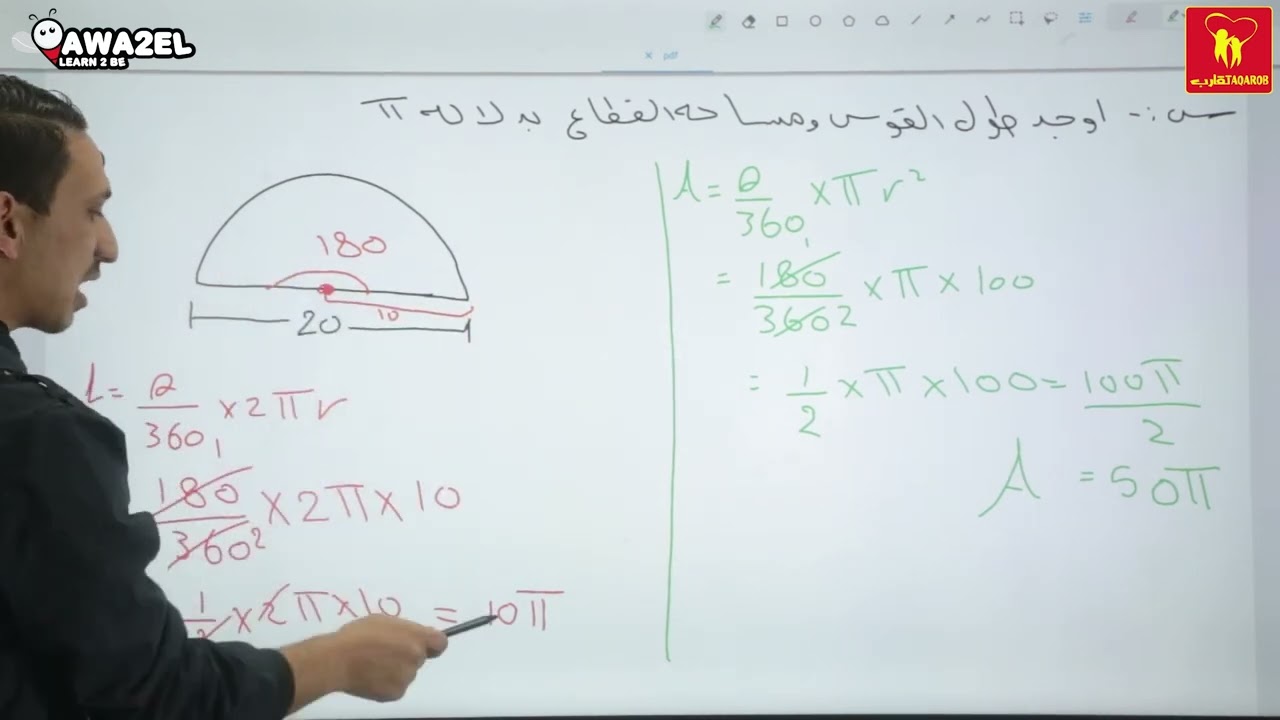 AWA2EL
LEARN 2 BE
تقارب TAQAROB
× pdf
س:- اوجد طول القوس ومساحة القطاع بدلالة π
180
10
20
L = θ/360 × 2πr
180/360 × 2π × 10
1
2
1/2 × 2π × 10 = 10π
A = θ/360 × πr²
= 180/360 × π × 100
1
2
= 1/2 × π × 100 = 100π/2
A = 50π